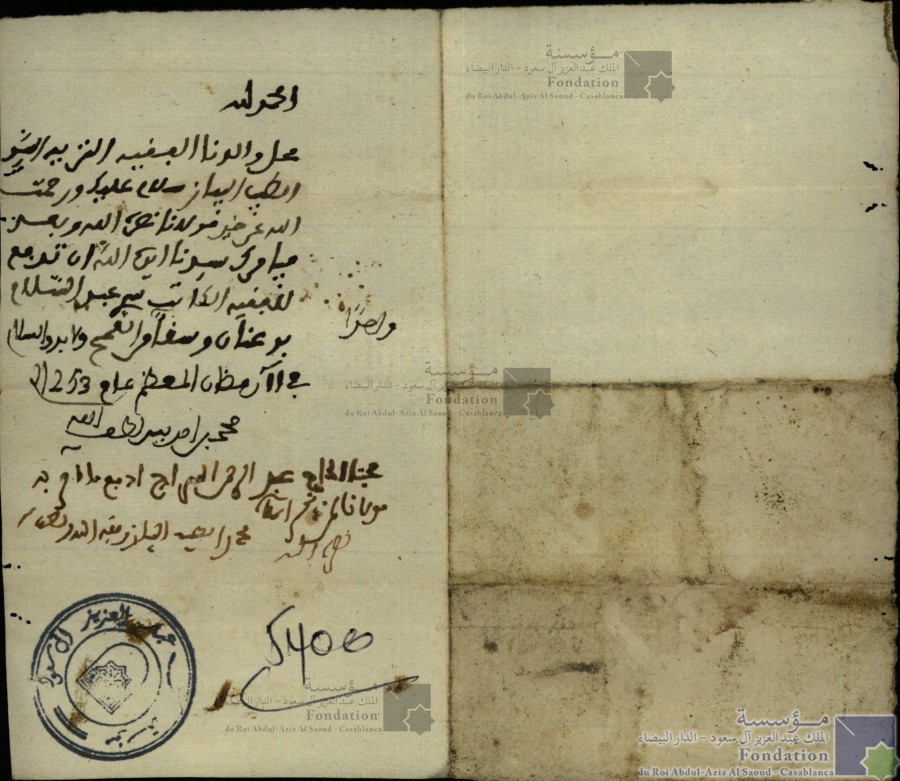 الحمد لله
محل والدنا الفقيه النزيه السيد
الطيب البياز سلام عليك ورحمت
الله عن خير مولانا نصره الله وبعد
فيامرك سيدنا ايده الله ان تدفع
للفقيه الكاتب سيد عبد السلام
بو عنان وسقا من القمح ولا بد والسلام
واحدا
في 11 رمضان المعظم عام 1253
محمد بن ادريس لطف الله
محبنا الحاج عبد الرحمن ادفع ما امر به
مولانا
نصره الله
5400
عبد العزيز آل سعود
مؤسسة
مؤسسة
الملك عبد العزيز آل سعود - الدار البيضاء
Fondation
du Roi Abdul-Aziz Al Saoud - Casablanca
مؤسسة
الملك عبد العزيز آل سعود - الدار البيضاء
Fondation
du Roi Abdul-Aziz Al Saoud - Casablanca
مؤسسة
الملك عبد العزيز آل سعود - الدار البيضاء
Fondation
du Roi Abdul-Aziz Al Saoud - Casablanca
مؤسسة
الملك عبد العزيز آل سعود - الدار البيضاء
Fondation
du Roi Abdul-Aziz Al Saoud - Casablanca